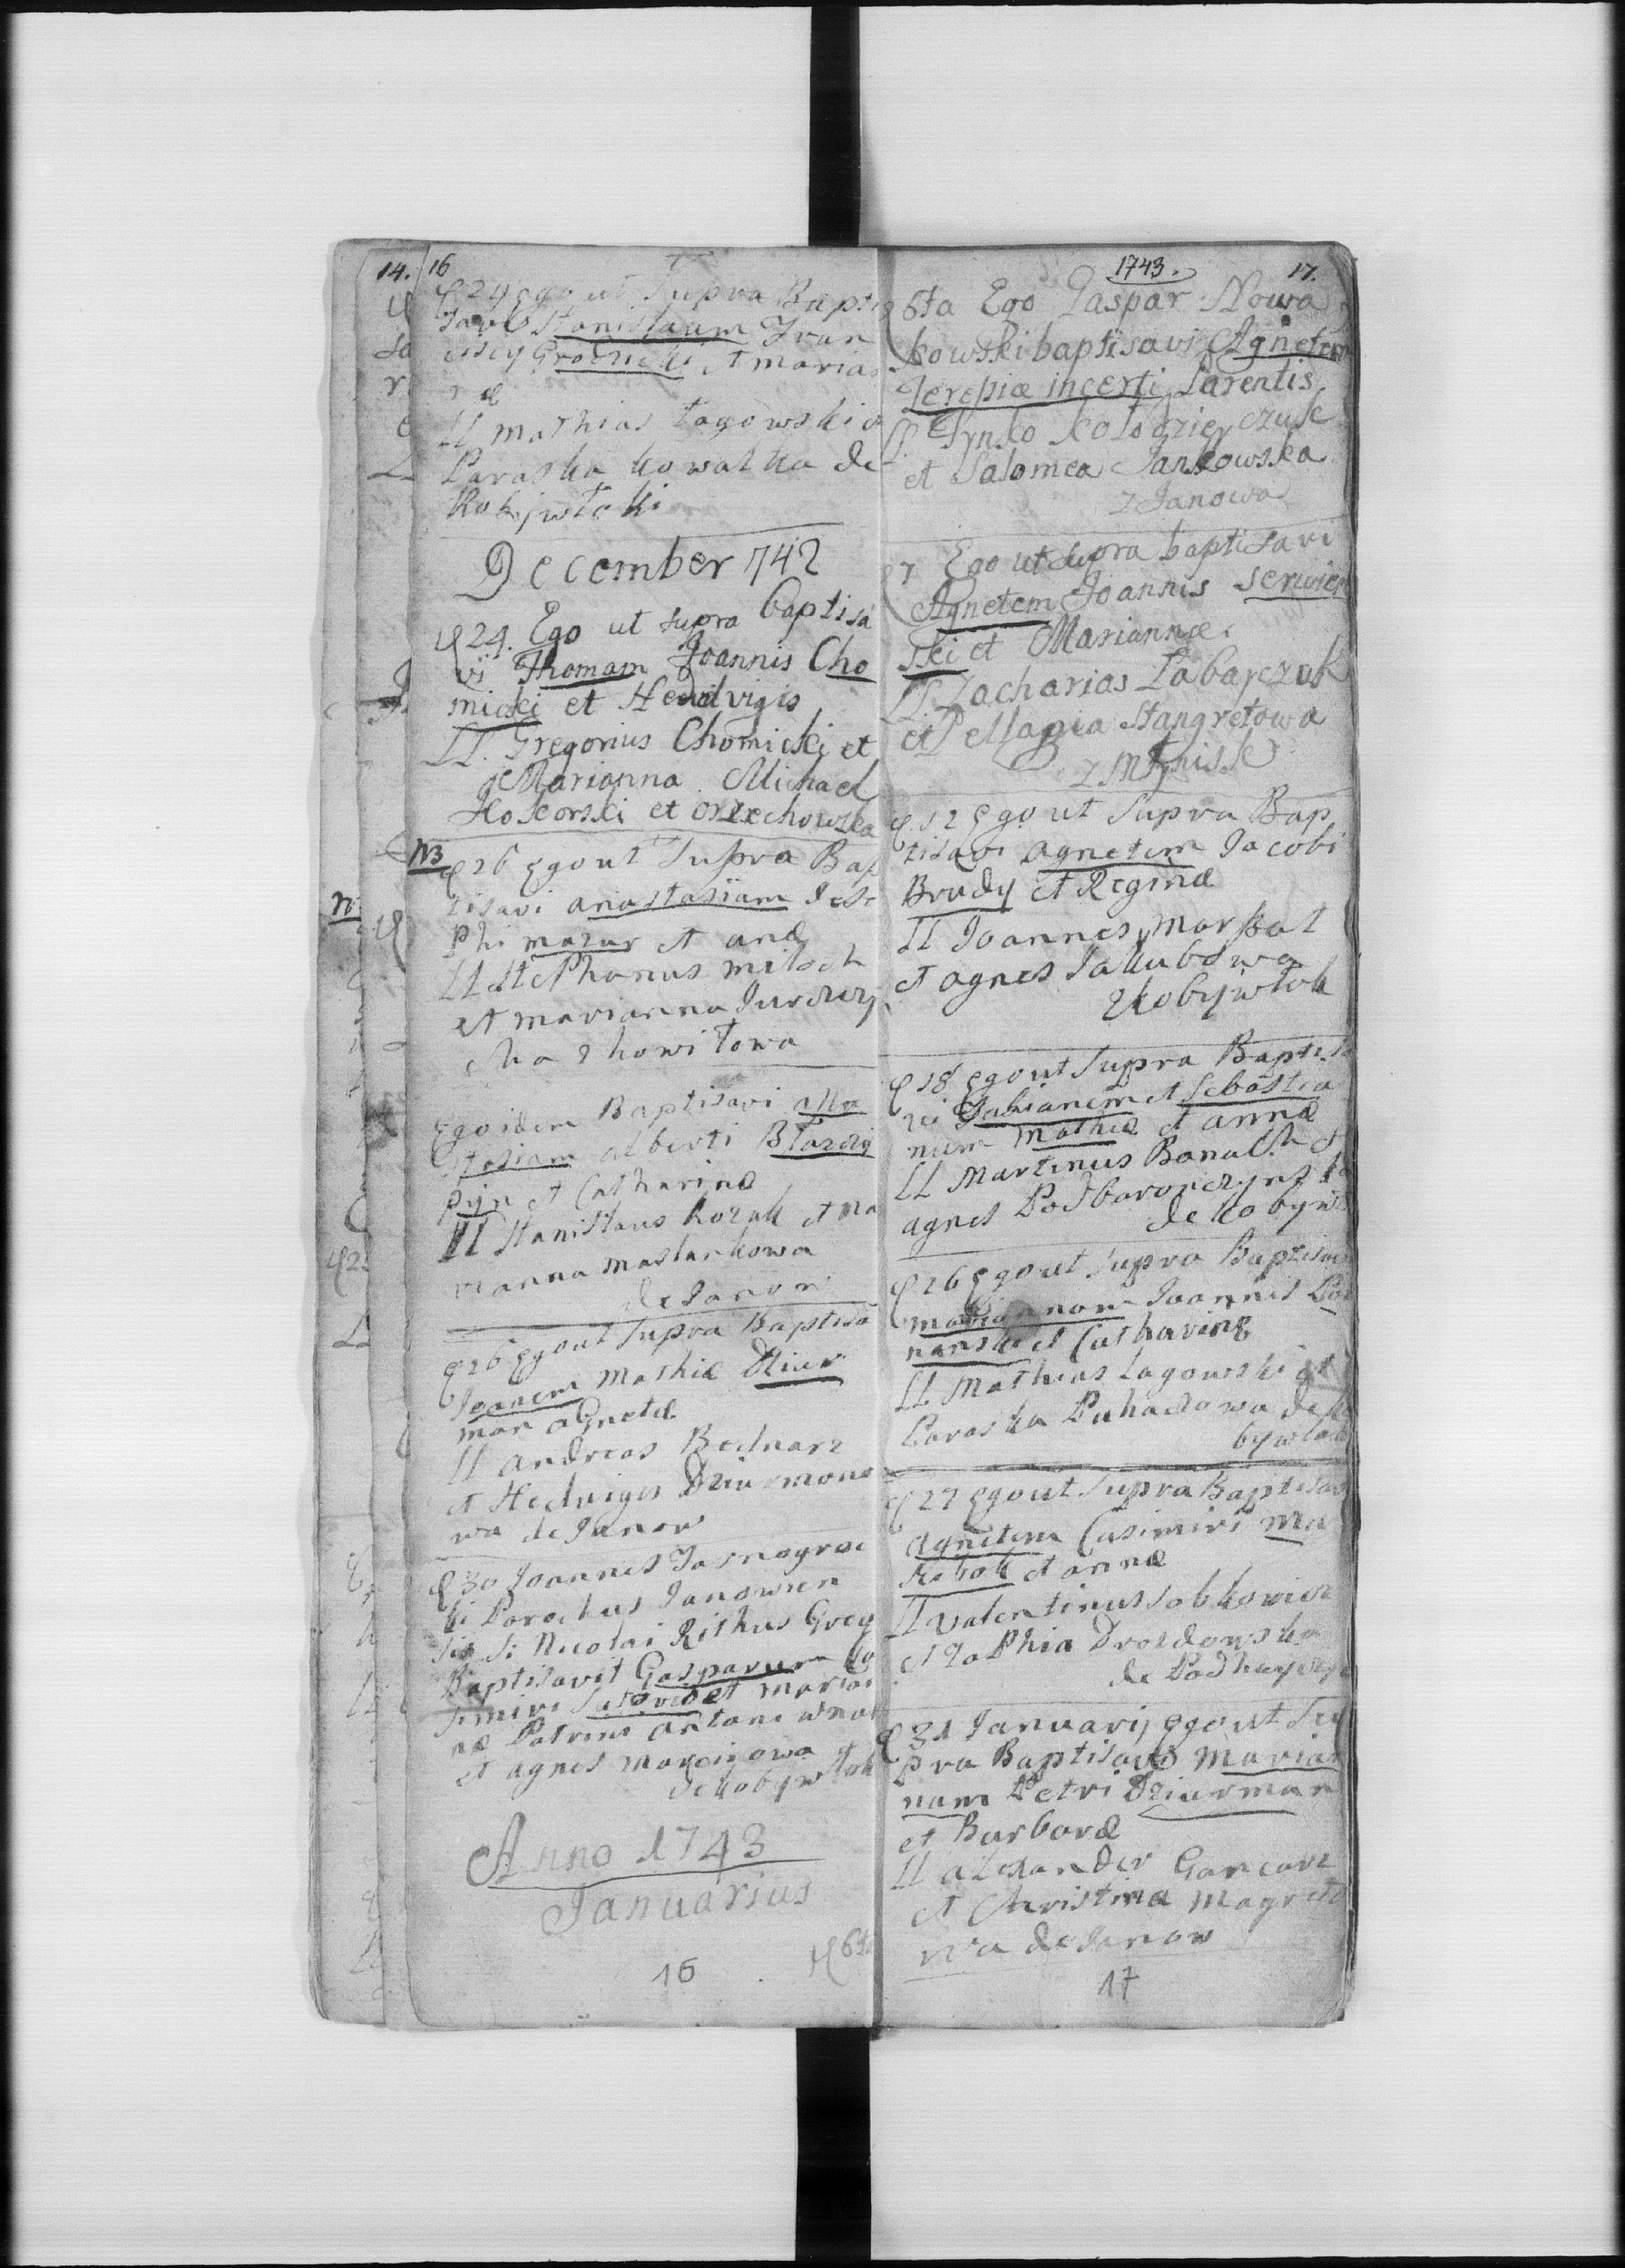 14.
16
24 Ego ut Supra Bapti
savi Stanislaum Fran
cisci Grodzicki et Marian
næ
LL Mathias Łagowski et
Paraska Kowalka de
Kobywłoki
December 742
24. Ego ut supra baptisa
vi Thomam Joannis Cho
micki et Hedvigis
LL. Gregorius Chomicki et
Marianna Michael
Hoskorski et Orzechowska
NB 26 Ego ut Supra Bap
tisavi anastasiam Jose
phi mazur et anæ
LL Stephanus miloch
et marianna Jurczy
cha z howiłowa
Ego idem Baptisavi ana
stasiam alberti Błazcy
pyn et Catharinæ
LL Stanislaus Kozak et Ma
rianna Maslankowa
de Janow
26 Ego ut Supra Baptisa
Joanem Mathiæ Dziur
man aGnetæ
LL andreas Bednarz
et Hedwiges Dziurmano
wa de Janow
30 Joannes Jasnogroc
ki Parochus Janowien
sis S: Nicolai Rithus Greg
Baptisavit Gasparum Ca
simiri et Marian
næ Patrini antoni
et agnes Marcijowa
de Kobywłok
Anno 1743
Januarius
6ta
16
1743.
17.
6ta Ego Gaspar Nowa
kowski baptisavi Agnetem
Jerepiæ incerti Parentis
LL. Hynko Kołodzieyczuk
et Salomea Jankowska
z Janowa
7 Ego ut supra baptisavi
Agnetem Joannis Serwien
ski et Mariannæ.
LL. Zacharias Łabayczuk
et Pellagia Stangretowa
z Młynisk
12 Ego ut Supra Bap
tisavi agnetem Jacobi
Brudy et Reginæ
LL Joannes Marszał
et agnes Jakubowa
z Kobywłok
18 Ego ut Supra Baptisa
vi Fabianem et Sebastia
num Mathiæ et annæ
LL Martinus Banach et
agnes Podbaronczynska
de Kobywło
26 Ego ut Supra Baptisavi
mariannam Joannis Poz
nanski et Catharinæ
LL Mathias Lagowski et
Paraska Puhaczowa de Ko
bywłok
27 Ego ut Supra Baptisavi
Agnetem Casimiri Ma
et annæ
LL Valentinus Sobkowicz
et Zophia Drozdowska
de Podhayczyk
31 Januarij Ego ut Su
pra Baptisavi Marian
nam Petri Dziurman
et Barbaræ
LL alexander Garcarz
et Christina Magreto
wa de Janow
17